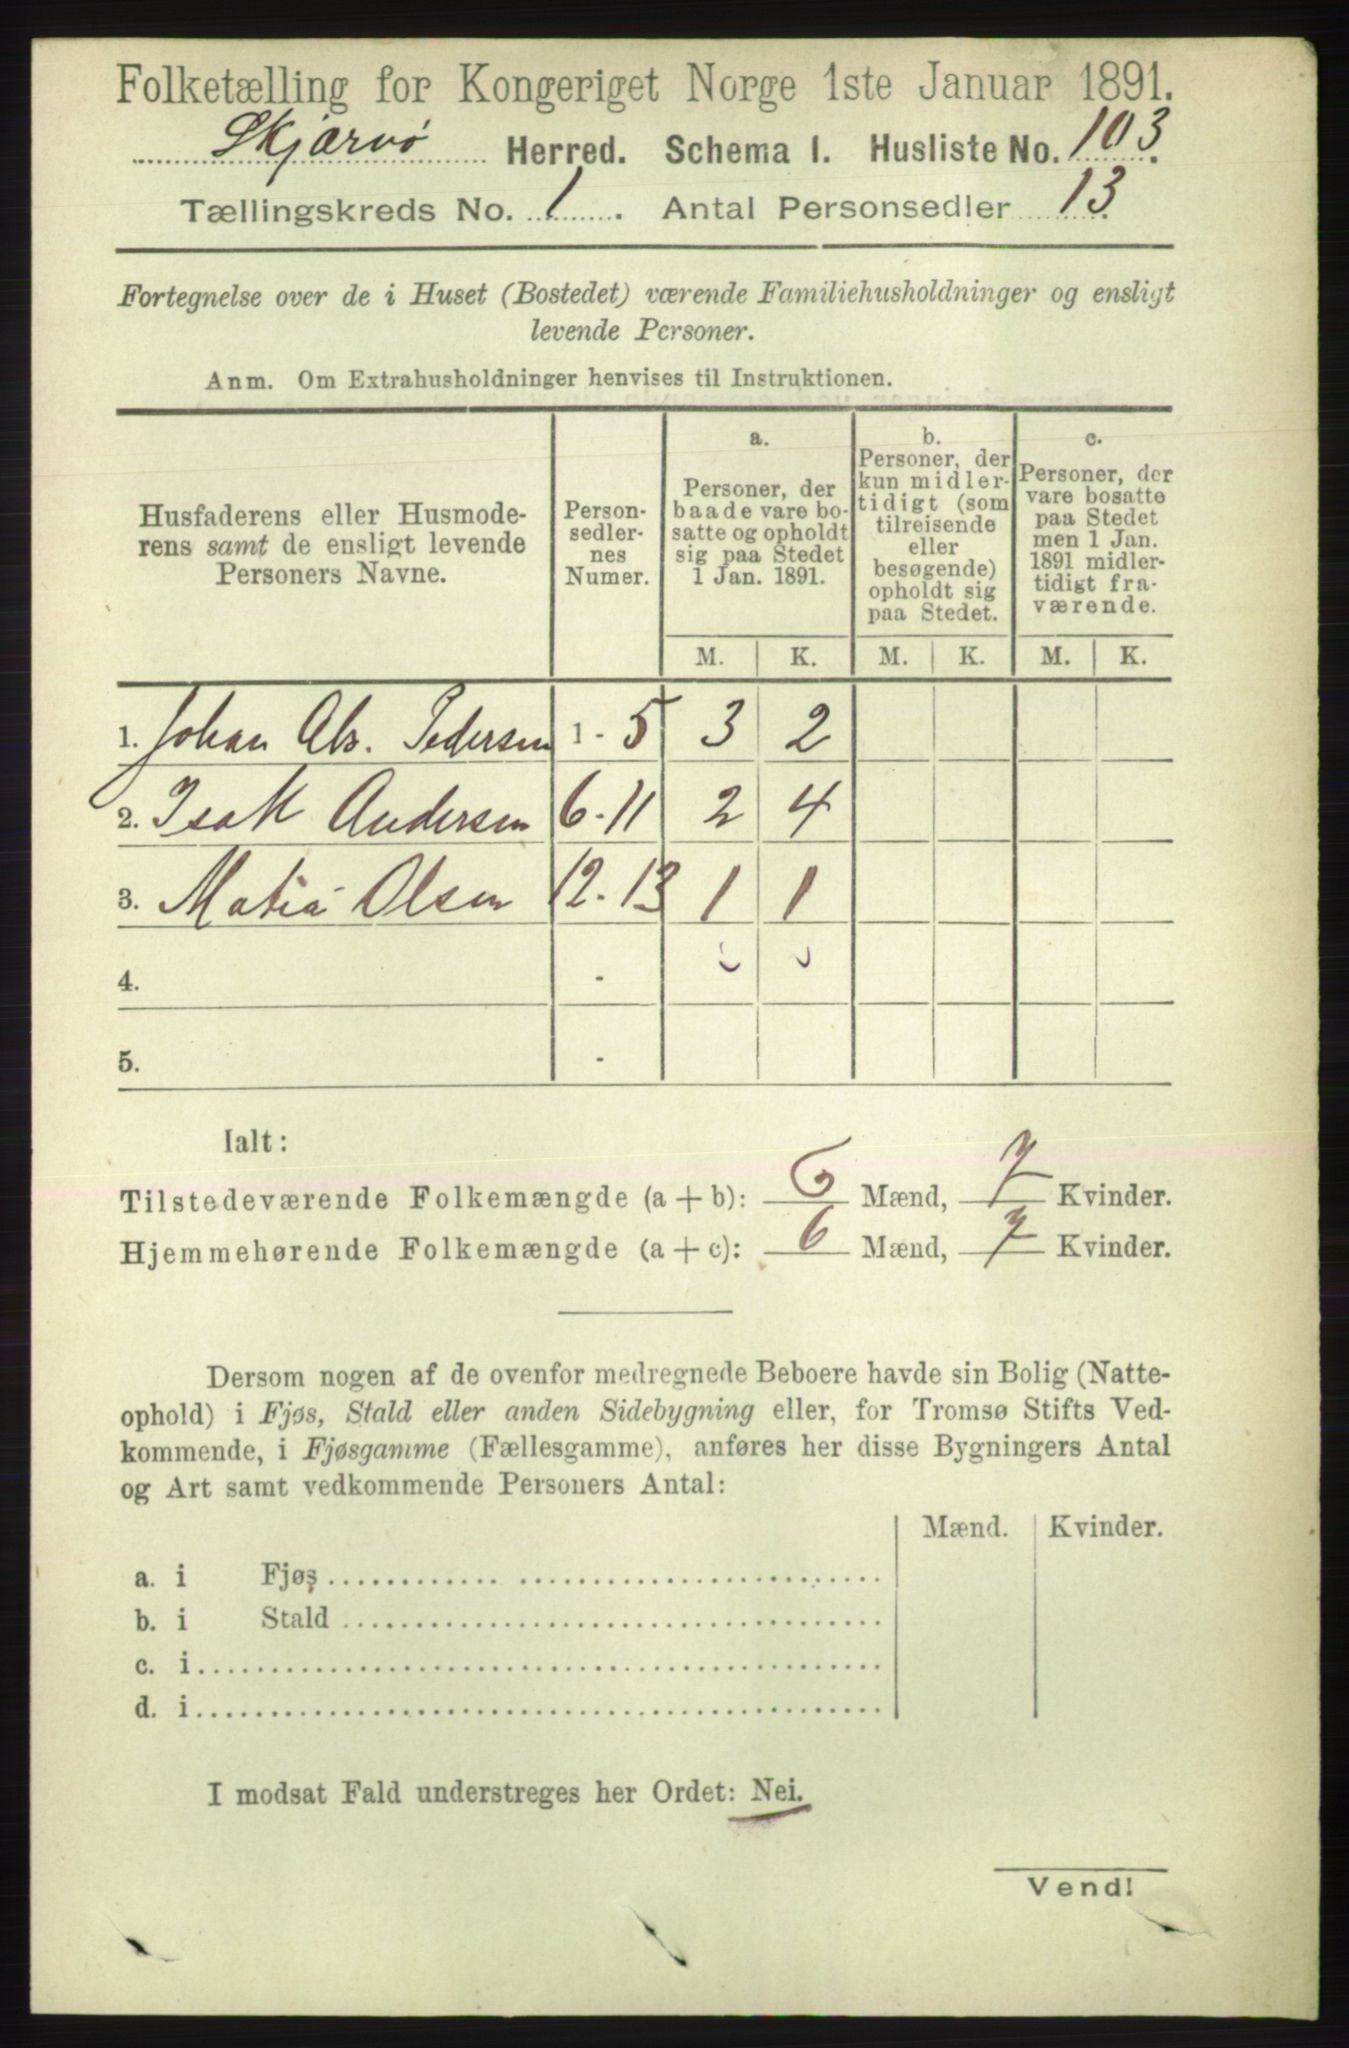 Folketælling for Kongeriget Norge 1ste Januar 1891.
Skjærvø Herred. Schema I. Husliste No. 103.
Tællingskreds No. 1. Antal Personsedler 13.
Fortegnelse over de i Huset (Bostedet) værende Familiehusholdninger og ensligt
levende Personer.
Anm. Om Extrahusholdninger henvises til Instruktionen.
Husfaderens eller Husmode-
rens samt de ensligt levende
Personers Navne.
Person-
sedler-
nes
Numer.
a.
Personer, der
baade vare bo-
satte og opholdt
sig paa Stedet
1 Jan. 1891.
b.
Personer, der
kun midler-
tidigt (som
tilreisende
eller
besøgende)
opholdt sig
paa Stedet.
c.
Personer, der
vare bosatte
paa Stedet
men 1 Jan.
1891 midler-
tidigt fra-
værende.
M. K. M. K. M. K.
1. Johan Pedersen 1 - 5 3 2
2. Isak Andersen 6-11 2 4
3. Olsen 12-13 1 1
4. -
5. -
Ialt:
Tilstedeværende Folkemængde (a + b): 6 Mænd, 7 Kvinder.
Hjemmehørende Folkemængde (a + c): 6 Mænd, 7 Kvinder.
Dersom nogen af de ovenfor medregnede Beboere havde sin Bolig (Natte-
ophold) i Fjøs, Stald eller anden Sidebygning eller, for Tromsø Stifts Ved-
kommende, i Fjøsgamme (Fællesgamme), anføres her disse Bygningers Antal
og Art samt vedkommende Personers Antal:
Mænd. Kvinder.
a. i Fjøs
b. i Stald
c. i
d. i
I modsat Fald understreges her Ordet: Nei.
Vend!